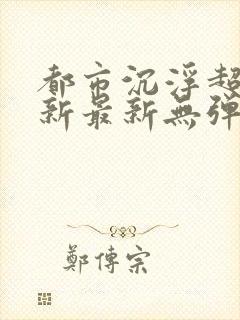 都市沉浮超
新最新無彈
鄭傳宗